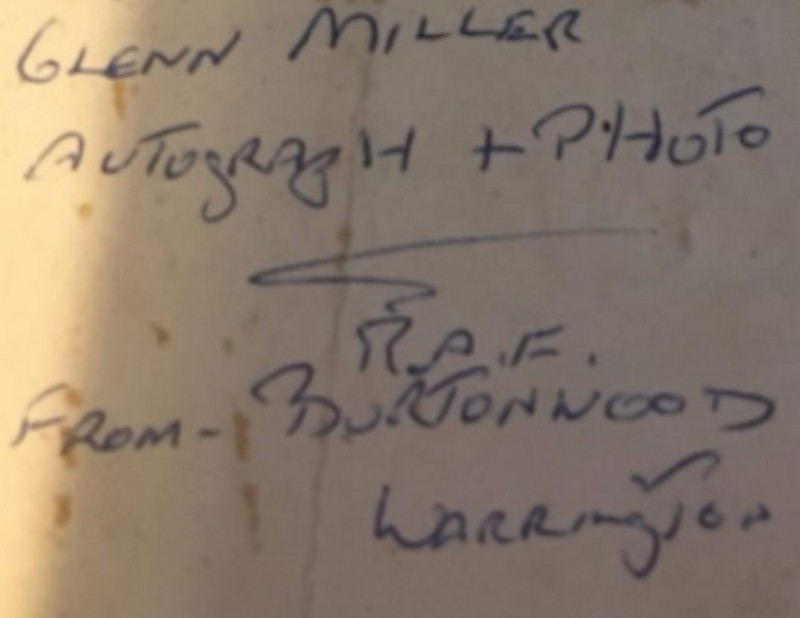 GLENN MILLER
AUTOGRAPH + PHOTO
R.A.F.
FROM - BURTONWOOD
WARRINGTON